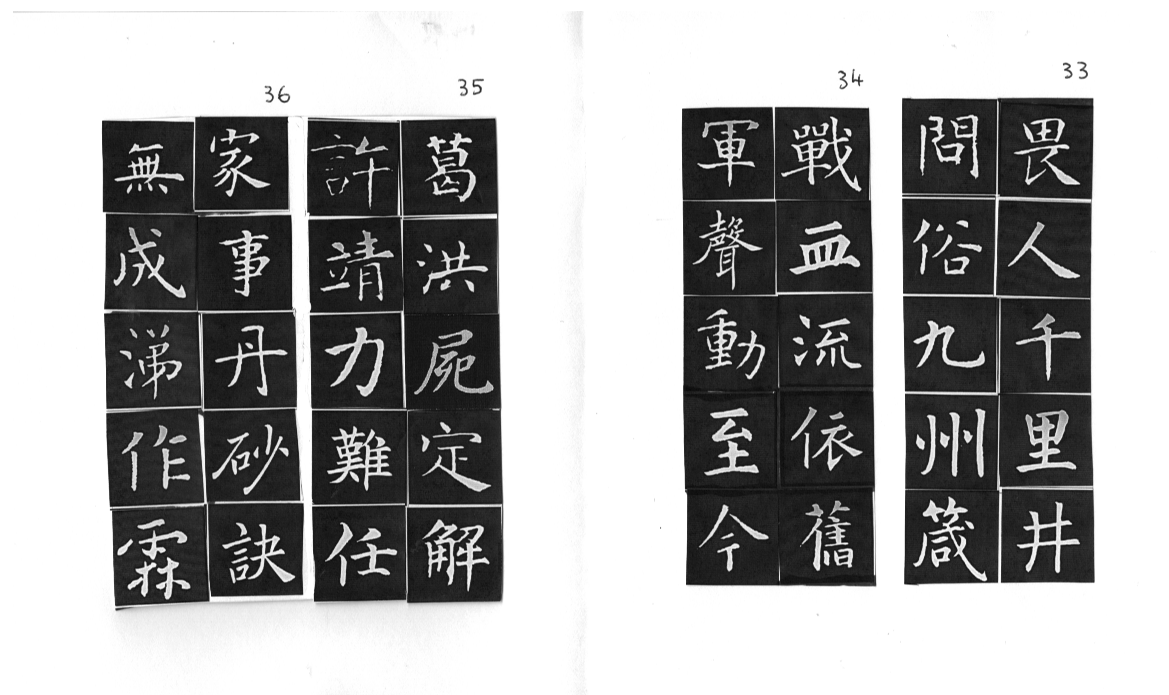 33
畏人千里井
問俗九州箴
34
戰血流依舊
軍聲動至今
35
葛洪屍定解
許靖力難任
36
家事丹砂訣
無成涕作霖